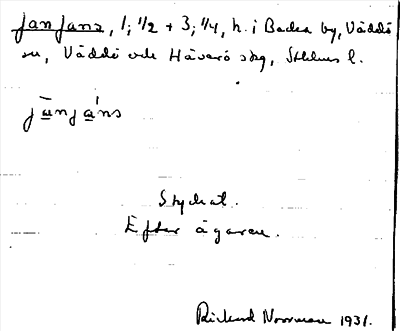 Jan Jans, 1; 1/2 + 3; 1/4, h. i Backa by, Väddö
sn, Väddö och Häverö skg, Sthlms l.
jānjáns
Styckat.
Efter ägaren.
Rickard Norrman 1931.